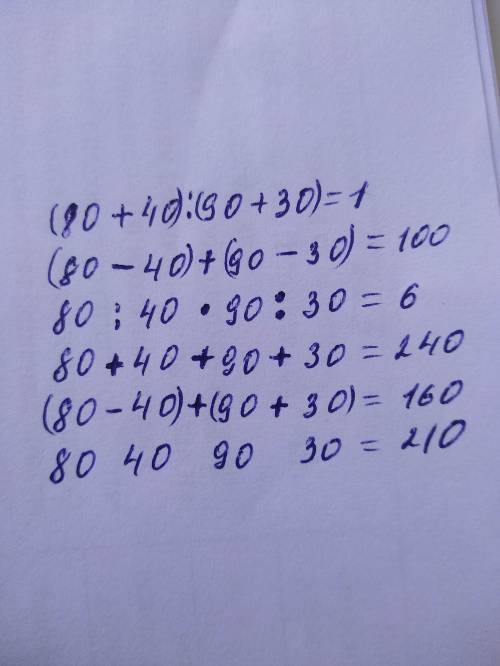 (80 + 40):(90 + 30) = 1
(80 - 40) + (90 - 30) = 100
80 : 40 · 90 : 30 = 6
80 + 40 + 90 + 30 = 240
(80 - 40) + (90 + 30) = 160
80 40 90 30 = 210